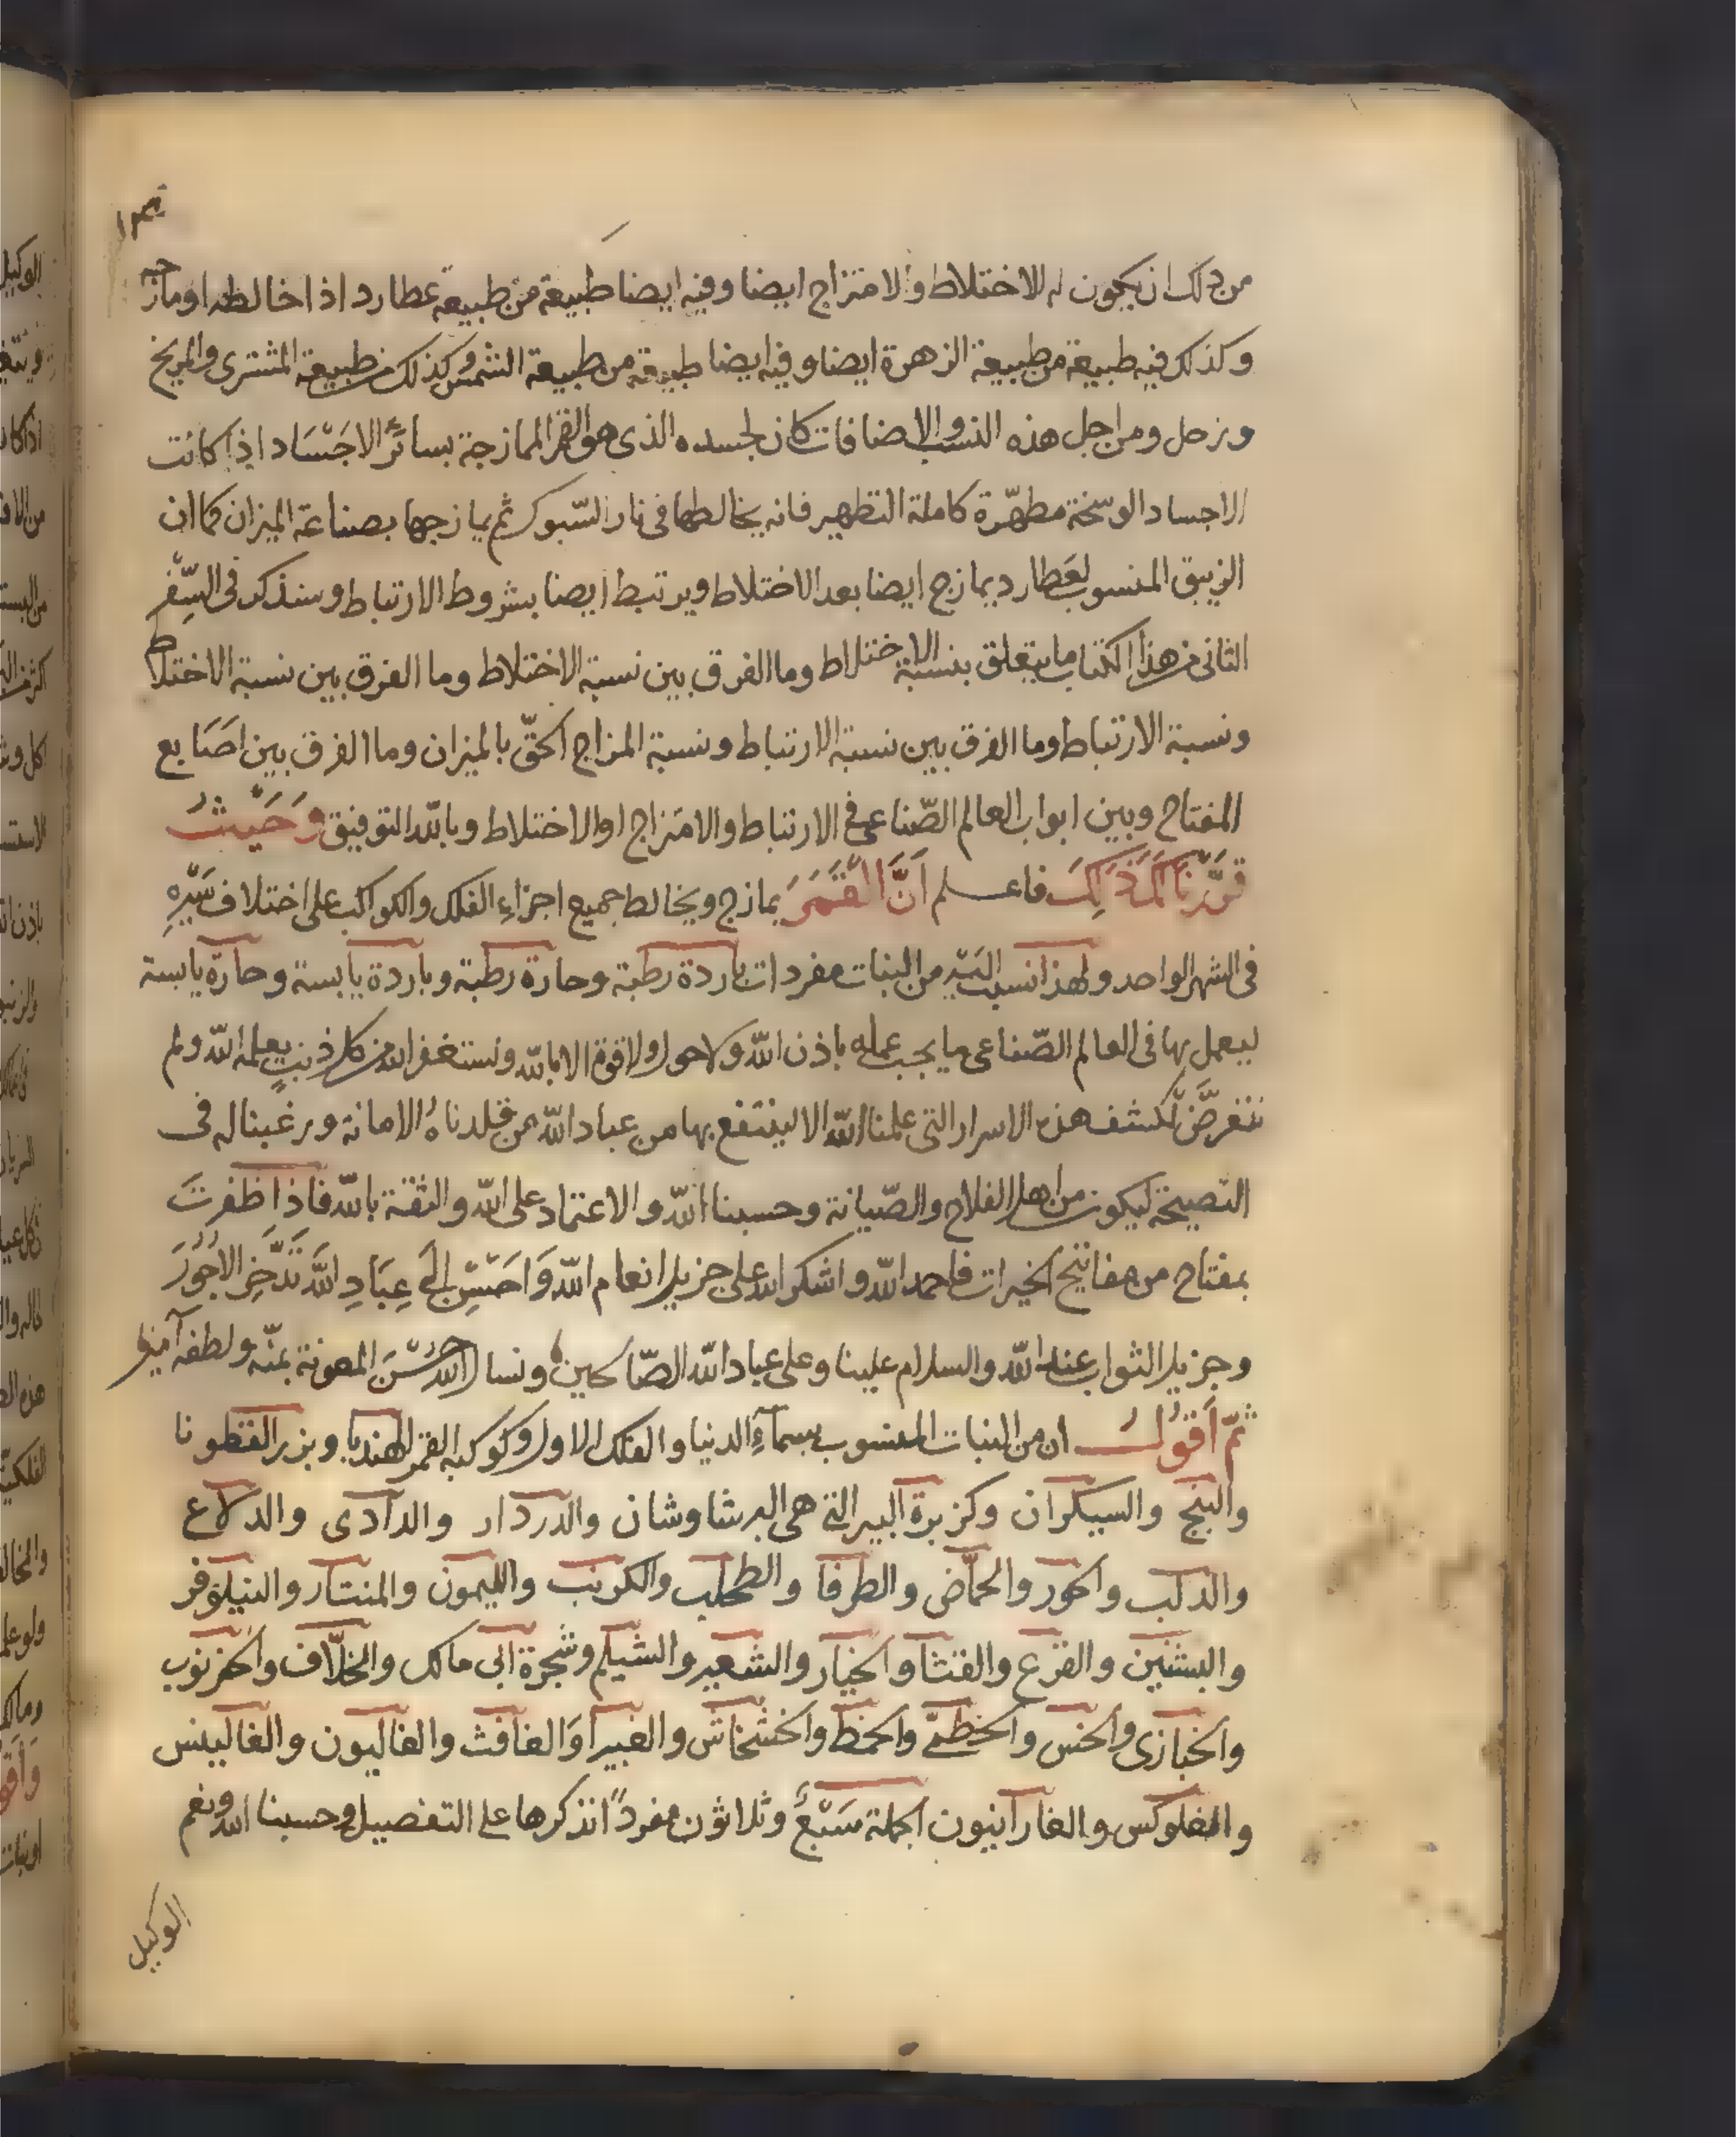 من ذلك ان يكون له الاختلاط والامتزاج ايضا وفيه ايضا طبيعة من طبيعة عطارد اذا خالطه اومازجه
وكذلك فيه طبيعة من طبيعة الزهرة ايضا وفيه ايضا طبيعة من طبيعة الشمس وكذلك من طبيعة المشترى والمريخ
وزحل ومن اجل هذه النسب والاضافات كان لجسده الذى هو القمر الممازجة بسائر الاجْسَاد اذا كانت
الاجساد الوسخة مطهّرة كاملة التطهير فانه يخالطها فى نار السّبوك ثم يمازجها بصناعة الميزان كما ان
الزيبق المنسوب لعَطارد يمازج ايضا بعد الاختلاط ويرتبط ايضا بشروط الارتباط وسنذكر فى السِّفْر
الثانى من هذا الكتاب ما يتعلق بنسبة الاختلاط وما الفرق بين نسبة الاختلاط وما الفرق بين نسبة الاختلاط
ونسبة الارتباط وما الفرق بين نسبة الارتباط ونسبة المزاج الحقّ بالميزان وما الفرق بين اصَابع
المفتاح وبين ابواب العالم الصّناعى فى الارتباط والامتزاج اوالاختلاط وبالله التوفيق وَحَيْثُ
قرَّرنَا لَكَ ذَلِكَ فاعلم اَنَّ الْقَمَرَ يمازج ويخالط جميع اجزاءِ الفلك والكواكب على اختلاف سَيْرِهِ
فى الشهر الواحد ولهذا نسبت اليْه من النبات مفردات باردة رطبة وحارة رطبة وباردة يابسة وحارة يابسة
ليعمل بها فى العالم الصّناعى ما يجب عمله باذن الله ولاحول ولاقوة الا بالله ونستغفر الله من كل ذنبٍ يعلمه الله ولم
نتعرَّض لكشف هذه الاسرار التى علمنا الله الا لينتفع بها من عباد الله من قلدناهُ الامانة ورغبنا له فى
النصيحة ليكون من اهل الفلاح والصّيانة وحسبنا الله والاعتماد على الله والثقة بالله فاذا ظفرتَ
بمفتاح من مفاتيح الخيرات فاحمد الله واشكر الله على جزيل انعام الله وَاحسْنِ الَى عِبَادِ اللهَ تدَّخِر الاُجُورَ
وجزيل الثواب عند الله والسلام علينا وعلى عباد الله الصّالحين ونسال الله حُسْنَ المعونة بمنّه ولطفه آمين
ثمّ اَقُولُ ان من النبات المنسوب بسمآءِ الدنيا والفلك الاول وكوكبه القمر الهندبا وبزر القطونا
والبنج والسيكران وكزبرة البير التى هى البرشاوشان والدردار والدادى والدلاع
والدلب والحور والحمّاض والطرفا والطحلب والكرنب والليمون والمنتثار والنيلوفر
والبشنين والقرع والقثا والخيار والشعير والشيلم وشجرة ابى مالك والخلّاف والخرنوب
والخبازى والخس والخطمى والخمط والخشخاش والغبيرا وَالغافث والغاليون والغالبنس
والفلوكس والغارآنيون الجملة سَبْعٌ وثلاثون مفردًا نذكرها على التفصيل وحسبنا الله ونعم
الوكيل